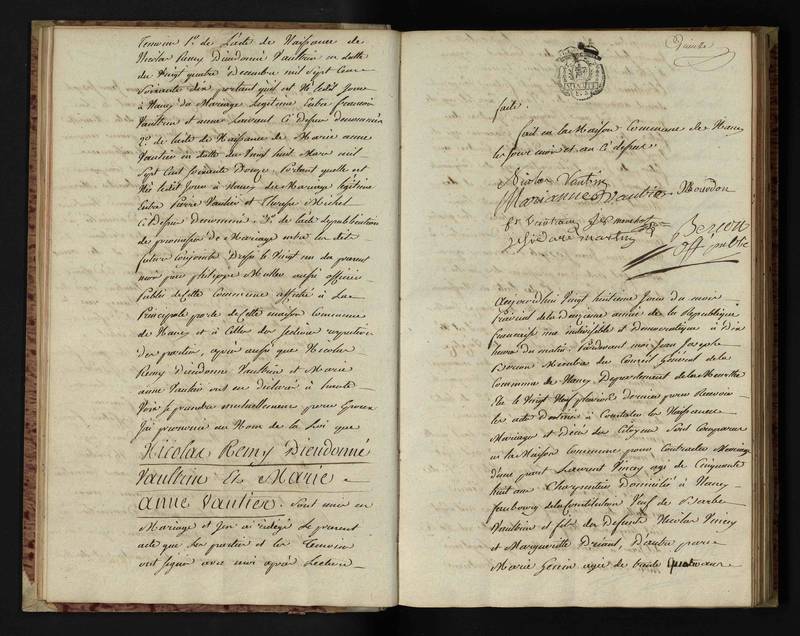 Témoins 1o. de l'acte de Naissance de
Nicolas Remy Dieudonné Vaultrin en datte
du Vingt quatre Decembre mil Sept Cent
Soixante dix portant qu'il est Né ledit Jour
à Nancy du Mariage légitime Entre francois
Vaultrin et anne Laurent Ci dessus denommés
2o. de l'acte de Naissance de Marie anne
Vautier en datte du Vingt huit Mars mil
Sept Cent Soixante Douze, Portant quelle est
Née ledit Jour à Nancy du Mariage légitime
Entre Pierre Vautier et Therese Michel
Ci dessus denommés. 3o. de l'acte de publication
de promesses de Mariage entre les dits
futurs Conjoints Dressé le Vingt un du present
mois par philippe Muller aussi officier
Public de cette Commune affiché à La
Principale porte de cette maison Commune
de Nancy, et à Celles des Sections respectives
des parties, après aussi que Nicolas
Remy Dieudonné Vaultrin et Marie
anne Vautier ont eu déclaré à haute
Voix se prendre mutuellement pour Epoux
J'ai prononcé au Nom de la Loi que
Nicolas Remy Dieudonné
Vaultrin Et Marie
anne Vautier. Sont unis en
Mariage et J'en ai redigé le present
acte que les parties et les Temoins
ont signé avec moi après Lecture
faite.
fait en la Maison Commune de Nancy
les Jour mois et an Ci dessus
Nicolas Vautrin
Marianne Vautier Mourdon
fr Vautrain
martin
off. public
Aujourd'hui Vingt huitieme Jour du mois
frairial de la Deuxieme année de la Republique
française une indivisible et Democratique à Dix
heures du matin. Pardevant moi Jean Joseph
Membre du Conseil Général de la
Commune de Nancy Departement de la Meurthe
Elu le Vingt Neuf pluviose dernier pour Recevoir
les actes Destinés à Constater les Naissances
Mariages et Décès des Citoyens Sont Comparus
en la Maison Commune pour Contracter Mariage
d'une part Laurent Vincy agé de Cinquante
huit ans Charpentier Domicilié à Nancy
faubourg de la Constitution Veuf de Barbe
Vaultrin et fils des Defunts Nicolas Vincy
et Margueritte Driant, D'autre part
Marie agée de trente quatre ans